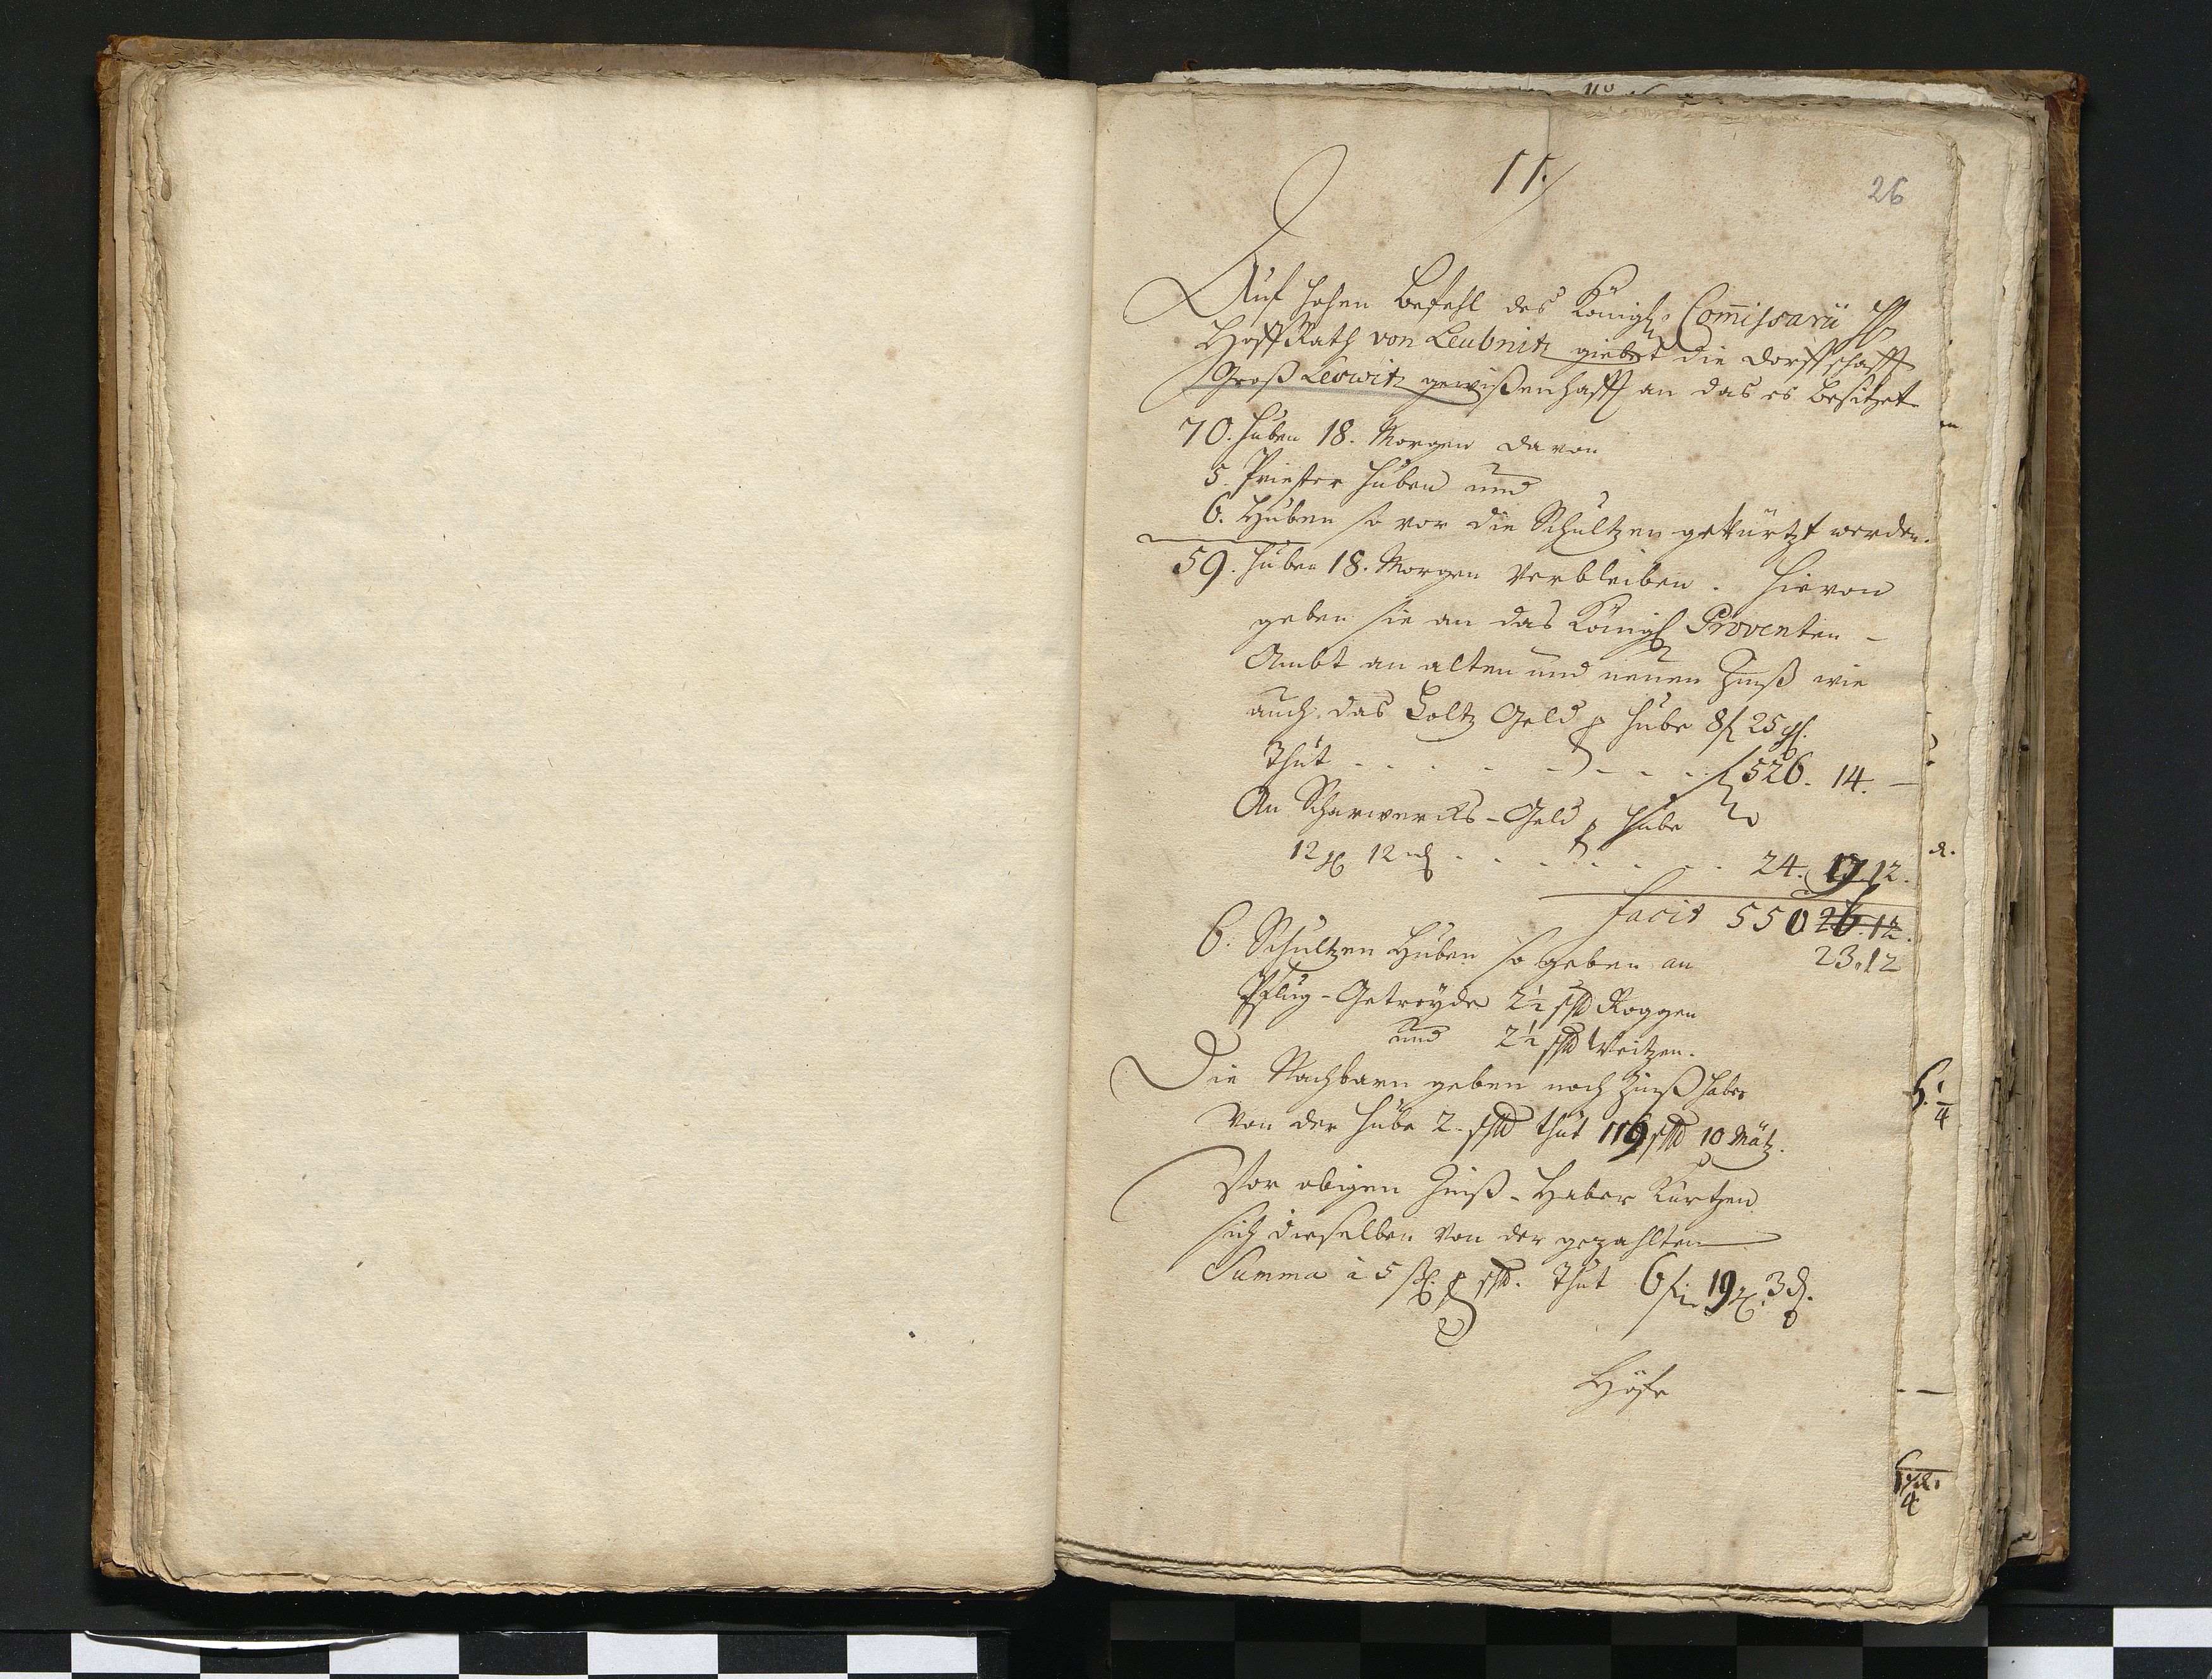 11.
26
Auf hohen Befehl des Königl. Commissarii H.
HoffRath von Leubnitz giebet die Dorffschafft
Groß Lesewitz gewißenhafft an das es besitzet
70. Huben 18. Morgen davon
5. Priester Huben und
6. Huben so vor die Schultzen gekürtzt werden.
59. Huben 18. Morgen verbleiben. Hievon
geben sie an das Königl. Proventen-
Ambt an alten und neuen Zinß wie
auch das Holtz Geld p Hube 8 f 25 gl.
Thut - - - - - - - - f 526. 14. —
An Scharwercks-Geld p Hube
12 gl 12 d - - - - - - - 24. 9. 12.
facit 550 26. 12.
23. 12
6. Schultzen Huben so geben an
Pflug-Getreyde 2½ schfl Roggen
und 2½ schfl Weitzen.
Die Nachbarn geben noch Zinß haber
von der Hube 2. schfl thut 119 schfl 10 Mätz.
Vor obigen Zinß-Haber Kürtzen
sich dieselben von der gezahlten
Summa à 5 ßl. p schfl. Thut 6 f. 19 gl. 3 d.
Höfe